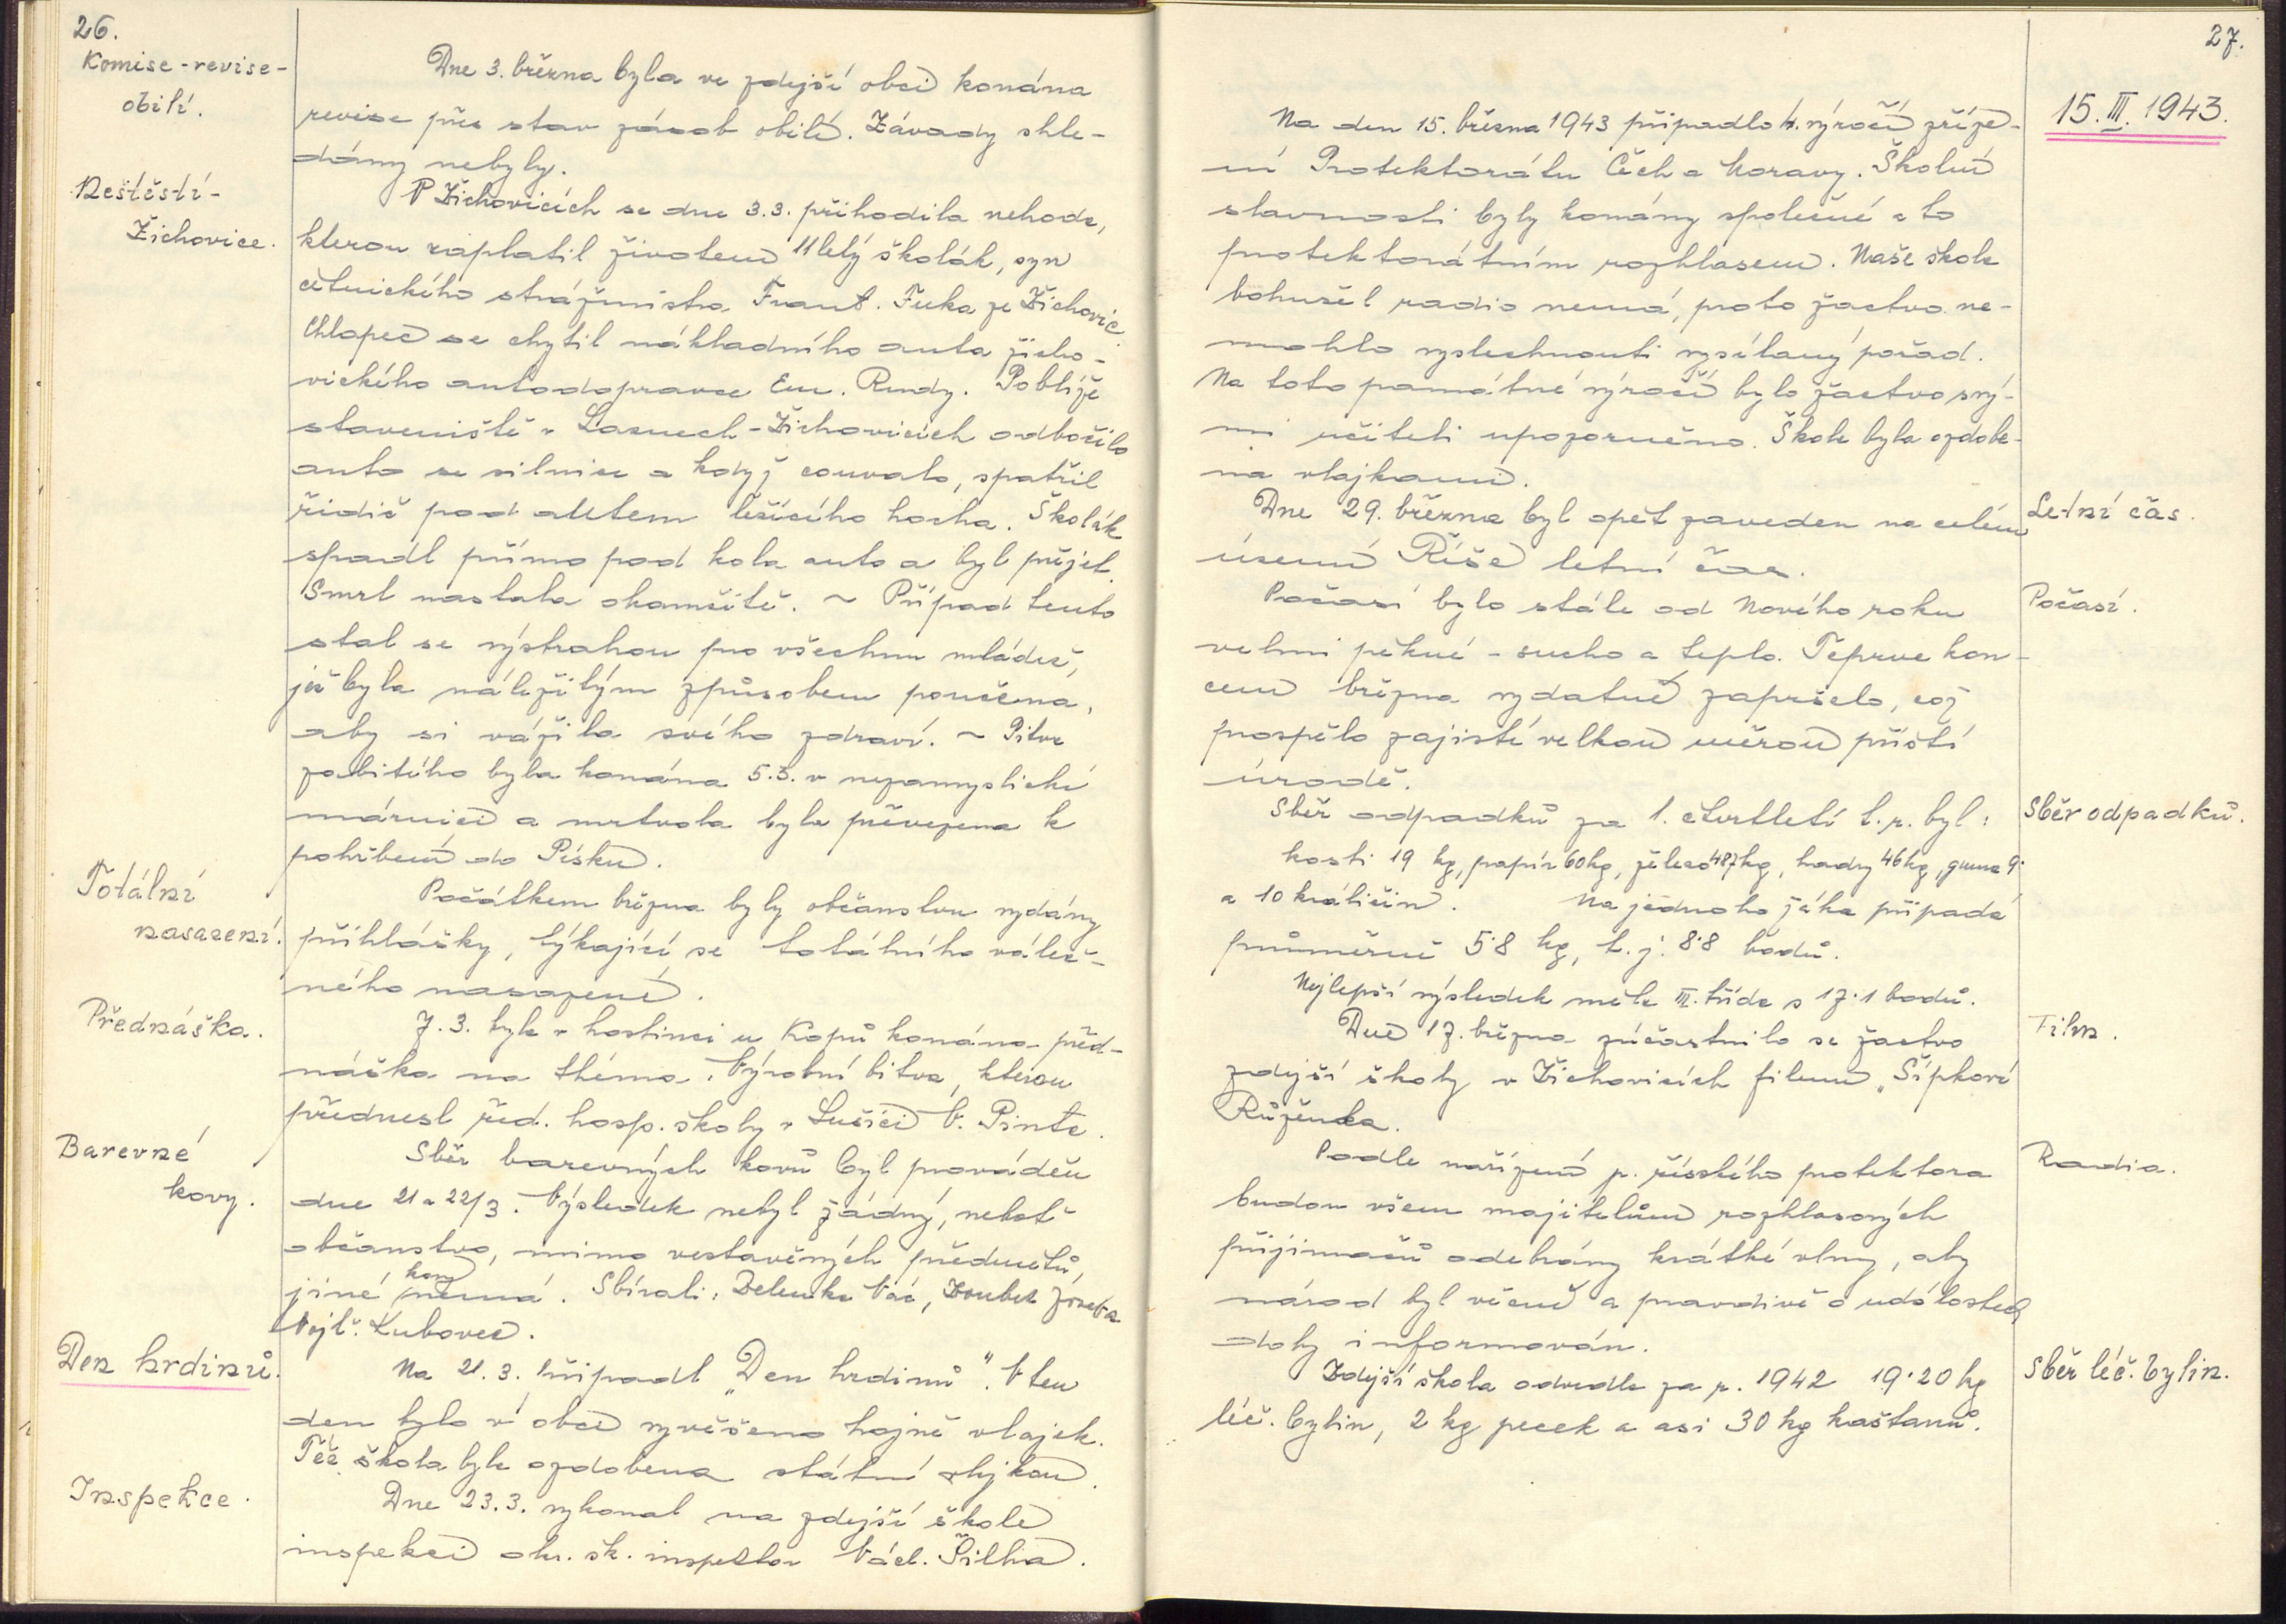 26.
Komise - revise -
obilí.
Dne 3. března byla ve zdejší obci konána
revise přes stav zásob obilí. Závady shle-
dány nebyly.
Neštěstí -
Žichovice.
V Žichovicích se dne 3.3. přihodila nehoda,
kterou zaplatil životem 11letý školák, syn
četnického strážmistra Frant. Fuka ze Žichovic.
Chlapec se chytil nákladního auta žicho-
vického autodopravce Em. Rendy. Poblíže
staveniště v Laznech - Žichovicích odbočilo
auto se silnice a když couvalo, spatřil
řidič pod autem ležícího hocha. Školák
spadl přímo pod kola auta a byl přejet.
Smrt nastala okamžitě. ~ Případ tento
stal se výstrahou pro všechnu mládež,
jež byla náležitým způsobem poučena,
aby si vážila svého zdraví. ~ Pitva
zabitého byla konána 5.3. v nezamyslické
márnici a mrtvola byla převezena k
pohřbení do Písku.
Totální
nasazení.
Počátkem března byly občanstvu vydány
přihlášky, týkající se totálního váleč-
ného nasazení.
Přednáška.
7. 3. byla v hostinci u Kopů konána před-
náška na théma: Výrobní bitva, kterou
přednesl řed. hosp. školy v Sušici V. Pinte.
Barevné
kovy.
Sběr barevných kovů byl prováděn
dne 21 a 22/3. Výsledek nebyl žádný, neboť
občanstvo, mimo vestavěných předmětů,
jiné kovy nemá. Sbírali: Zelenka Vác, Zoubek Josef a
Vojt. Kubovec.
Den hrdinů.
Na 21. 3. připadl „Den hrdinů". V ten
den bylo v obci vyvěšeno hojně vlajek.
Též škola byla ozdobena státní vlajkou.
Inspekce.
Dne 23.3. vykonal na zdejší škole
inspekci okr. šk. inspektor Václ. Šilha.
27.
15. III. 1943.
Na den 15. března 1943 připadlo 4. výročí zříze-
ní Protektorátu Čech a Moravy. Školní
slavnosti byly konány společně a to
protektorátním rozhlasem. Naše škola
bohužel radio nemá, proto žactvo ne-
mohlo vyslechnouti vysílaný pořad.
Na toto památné výročí bylo žactvo svý-
mi učiteli upozorněno. Škola byla ozdobe-
na vlajkami.
Letní čas.
Dne 29. března byl opět zaveden na celém
území Říše letní čas.
Počasí.
Počasí bylo stále od Nového roku
velmi pěkné - sucho a teplo. Teprve kon-
cem března vydatně zapršelo, což
prospělo zajisté velkou měrou příští
úrodě.
Sběr odpadků.
Sběr odpadků za 1. čtvrtletí t.r. byl:
kosti 19 kg, papír 60 kg, železo 487 kg, hadry 46 kg, guma 9
a 10 králičin. Na jednoho žáka připadá
průměrně 5·8 kg, t. j. 8·8 bodů.
Nejlepší výsledek měla III. třída s 17·1 bodů.
Film.
Dne 17. března zúčastnilo se žactvo
zdejší školy v Žichovicích filmu „Šípková
Růženka.
Radia.
Podle nařízení p. říšského protektora
budou všem majitelům rozhlasových
přijimačů odebrány krátké vlny, aby
národ byl věcně a pravdivě o událostech
doby informován.
Sběr léč. bylin.
Zdejší škola odvedla za r. 1942 19·20 kg
léč. bylin, 2 kg pecek a asi 30 kg kaštanů.